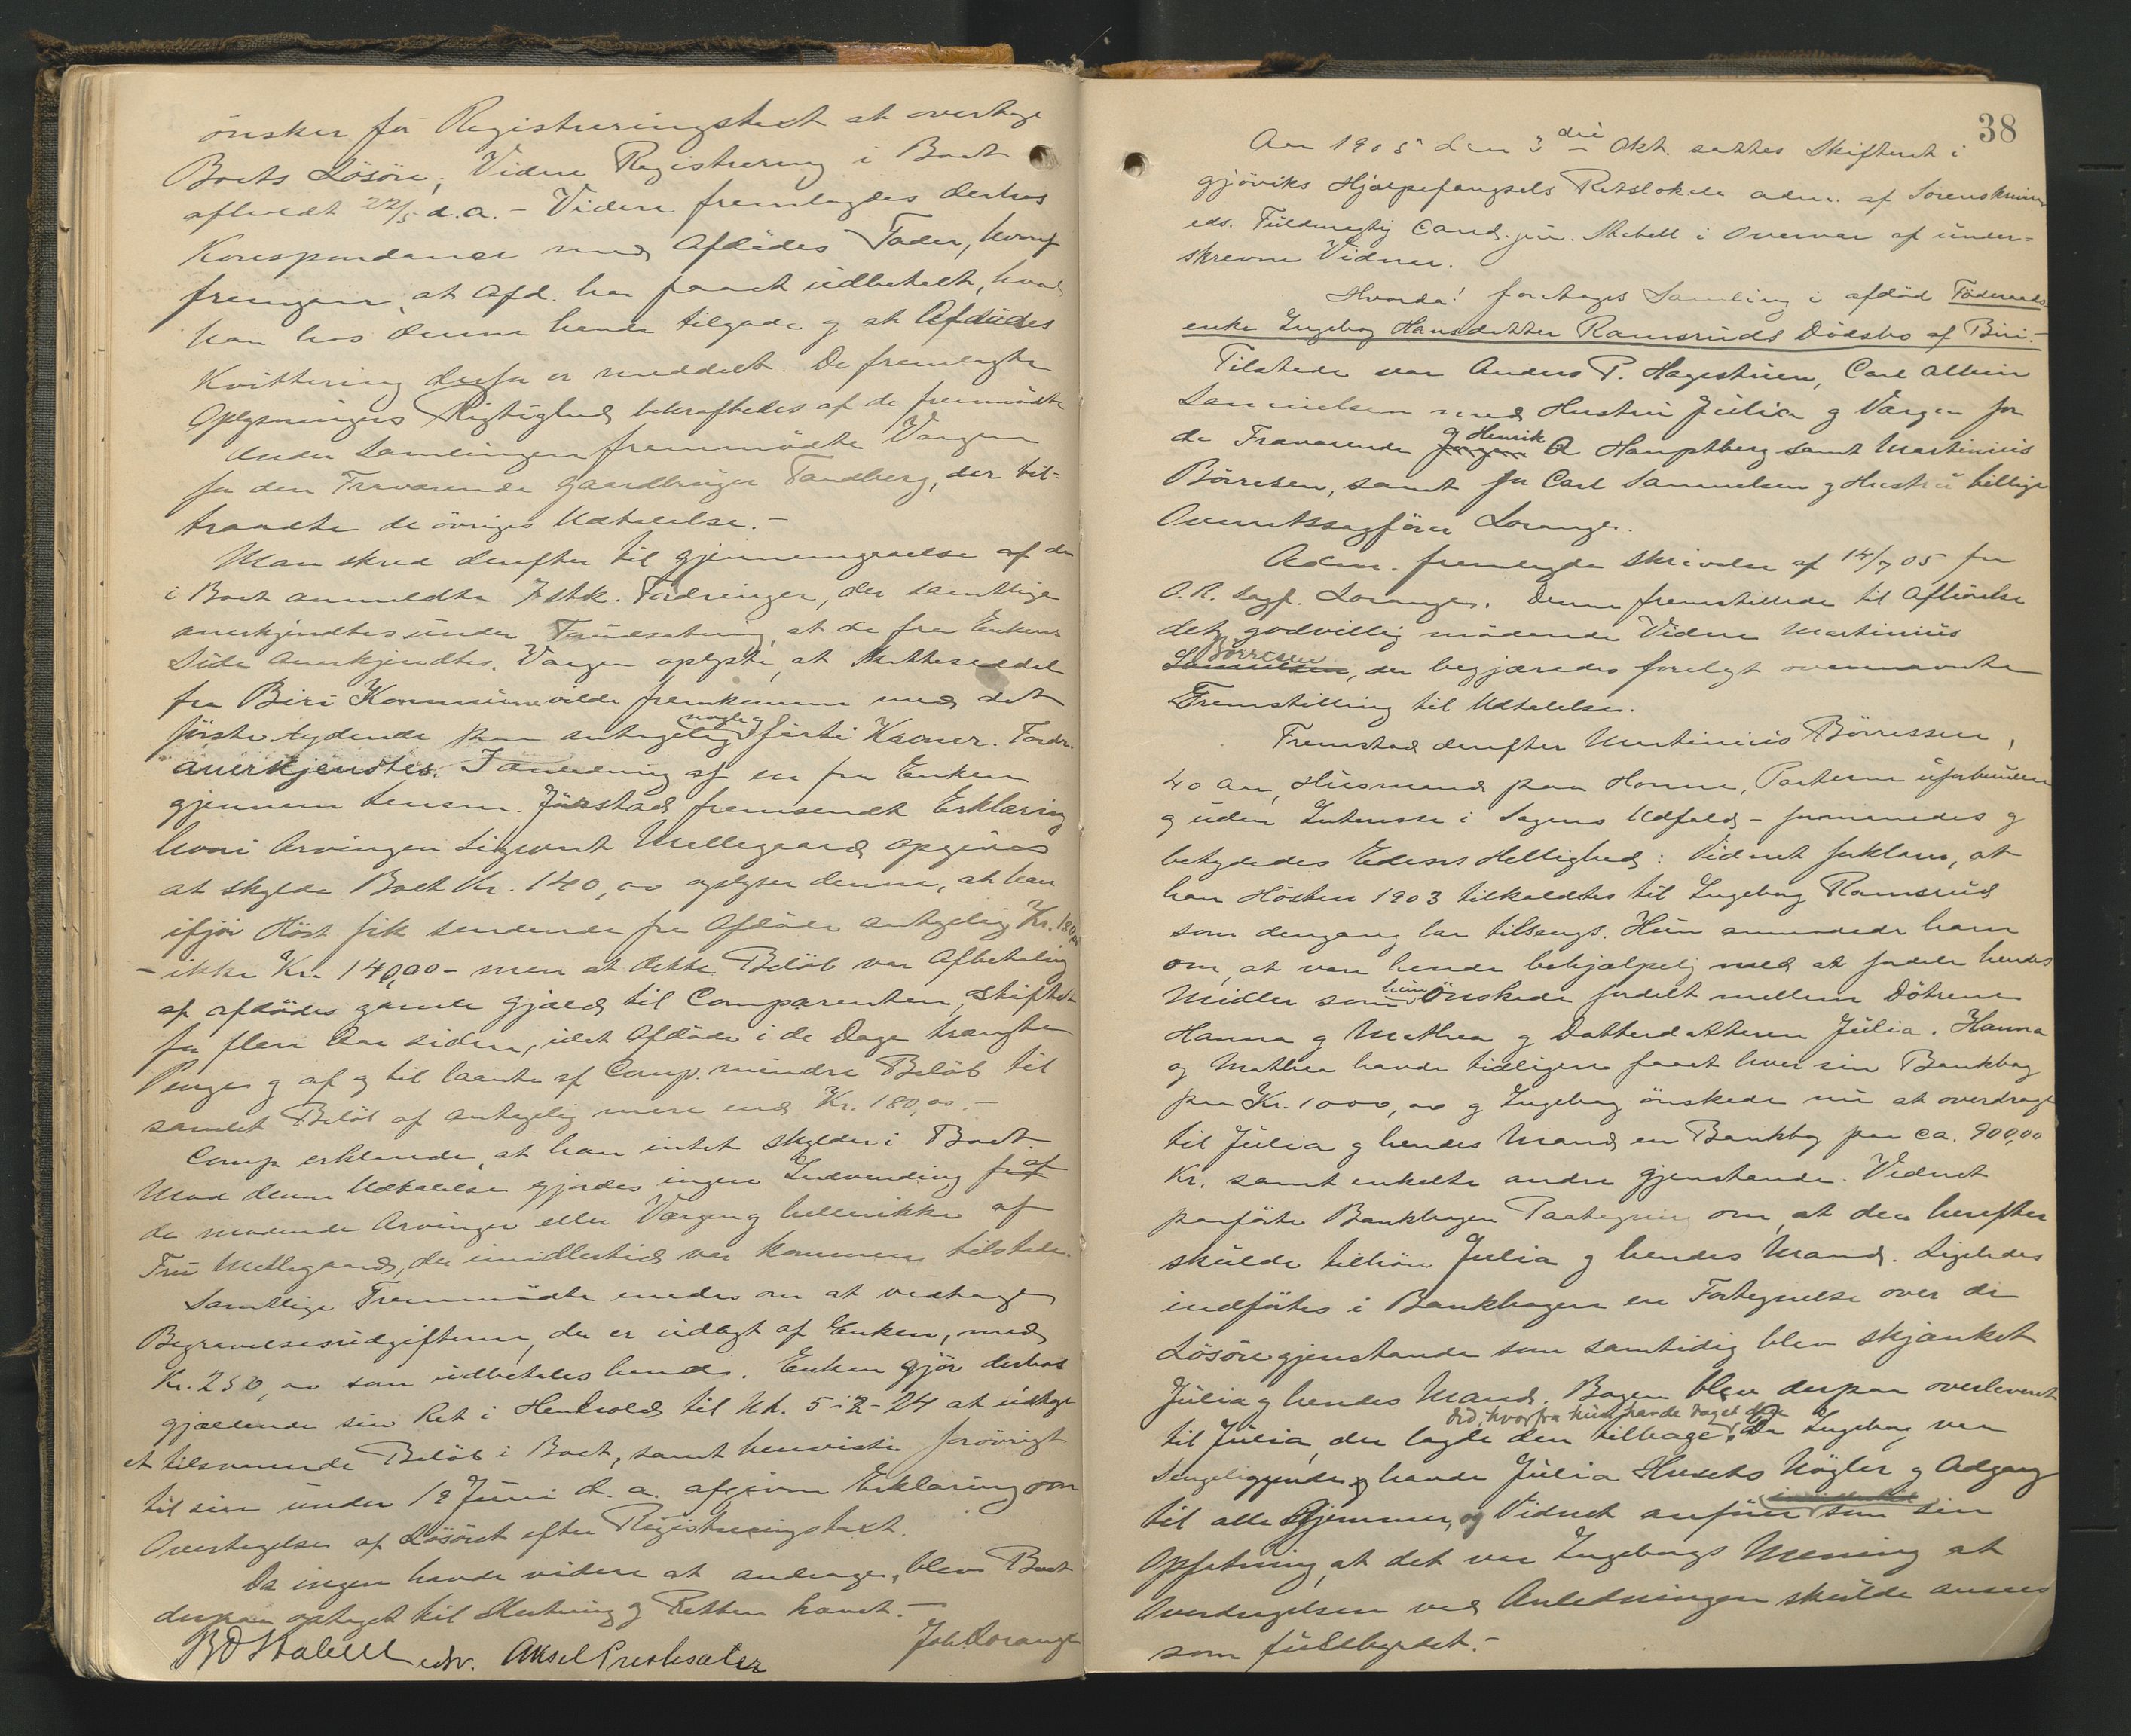 ønsker for Registreringstaxt at overtage
Boets Løsøre; Videre Registrering i Boet
afholdt 22/5 d.a. - Videre fremlagdes derhos
Korespondance med Afdødes Fader, hvoraf
fremgaar, at Afd. har faaet udbetalt, hvad
han hos denne havde tilgode og at Afdødes
Kvittering derfor er meddelt. De fremlagte
Oplysningers Rigtighed bekræftedes af de fremmødte
Under Samlingen fremmødte Værgen
for den Fraværende Gaardbruger Sandberg, der til=
traadte de øvriges Udtalelse. -
Man skred derefter til Gjennemgaaelse af de
i Boet anmeldte 7 stk. Fordringer, der samtlige
anerkjendtes under Forudsætning, at de fra Enkens
Side anerkjendtes. Værgen oplyste, at Skatteseddel
fra Biri Kommune vilde fremkomme med det
første lydende paa antagelig nogle og førti Kroner. Fordr.
anerkjendtes. I Anledning af en fra Enken
gjennem Lensm. Jørstad fremsendt Erklæring
hvori Arvingen Sigvart Mellegaard opgives
at skylde Boet Kr. 140,00 oplyser denne, at han
ifjor Høst fik sendende fra Afdøde antagelig Kr. 180,00
- ikke Kr. 140,00 - men at dette Beløb var Afbetaling
af afdødes gamle Gjæld til Comparenten, stiftet
for flere Aar siden, idet Afdøde i de Dage trængte
Penge og af og til laante af Comp. mindre Beløb til
samlet Beløb af antagelig mere end Kr. 180,00. -
Comp. erklærede, at han intet skylder i Boet.
Mod denne Udtalelse gjordes ingen Indvending af
de mødende Arvinger eller Værgen og heller ikke af
Fru Mellegaard, der imidlertid var kommen tilstede.
Samtlige Fremmødte enedes om at vedtage
Begravelsesudgifterne, der er udlagt af Enken, med
Kr. 250,00 som udbetales hende. Enken gjør derhos
gjældende sin Ret i Henhold til Nl. 5-2-24 at udtage
et tilsvarende Beløb i Boet, samt henviste forøvrigt
til sin under 12 Juni d. a. afgivne Erklæring om
Overtagelse af Løsøret efter Registreringstaxt.
Da ingen havde videre at andrage, blev Boet
derpaa optaget til Slutning og Retten hævet. -
Aksel Joh. Lorange
38
Aar 1905 den 3die Okt. sattes Skifteret i
Gjøviks Hjælpefængsels Retslokale adm. af Sorenskriver
eds. Fuldmægtig Cand. jur. Stabell i Overvær af under=
skrevne Vidner.
Hvorda! foretoges Samling i afdød Føderaads
enke Ingeborg Hansdatter Ramsruds Dødsbo af Biri. -
Tilstede var Anders P. Hagestuen, Carl Albin
Samuelsen med Hustru Julia og Værgen for
de Fraværende og Henrik A Hauptberg samt Martinius
Børresen, samt for Carl Samuelsen og Hustru billige
Overretssagfører Lorange.
Adm. fremlagde Skrivelse af 14/7 05 fra
O.R. Sagf. Lorange. Denne fremstillede til Afhørelse
det godvillig mødende Vidne Martinius
Børresen, der begjæredes forelagt ovennævnte
Fremstilling til Udtalelse.
Fremstod derefter Martinius Børressen,
40 Aar, Husmand paa Honne, Parterne uforbunden
og uden Interesse i Sagens Udfald - formanedes og
betydedes Edens Hellighed: Vidnet forklarer, at
han Høsten 1903 tilkaldtes til Ingeborg Ramsrud
som dengang laa tilsengs. Hun anmodede ham
om, at være hende behjælpelig med at fordele hendes
Midler som hun Ønskede fordelt mellem Døtrene
Hanna og Mathea og Datterdatteren Julia. Hanna
og Mathea havde tidligere faaet hver sin Bankbog
paa Kr. 1000,00 og Ingeborg ønskede nu at overdrage
til Julia og hendes Mand en Bankbog paa ca. 900,00
Kr. samt enkelte andre Gjenstande. Vidnet
paaførte Bankbogen Paategning om, at den herefter
skulde tilhøre Julia og hendes Mand. Ligeledes
indførtes i Bankbogen en Fortegnelse over de
Løsøregjenstande som samtidig blev skjænket
Julia og hendes Mand. Bogen blev derpaa overleveret
til Julia, der lagde den tilbage did, hvorfra hun havde taget den. Da Ingeborg var
Sengeliggende, havde Julia Husets Nøgler og Adgang
til alle Gjemmer, og Vidnet anfører som sin
Opfatning, at det var Ingeborgs Mening at
Overdragelsen ved Anledningen skulde ansees
som fuldbyrdet. -